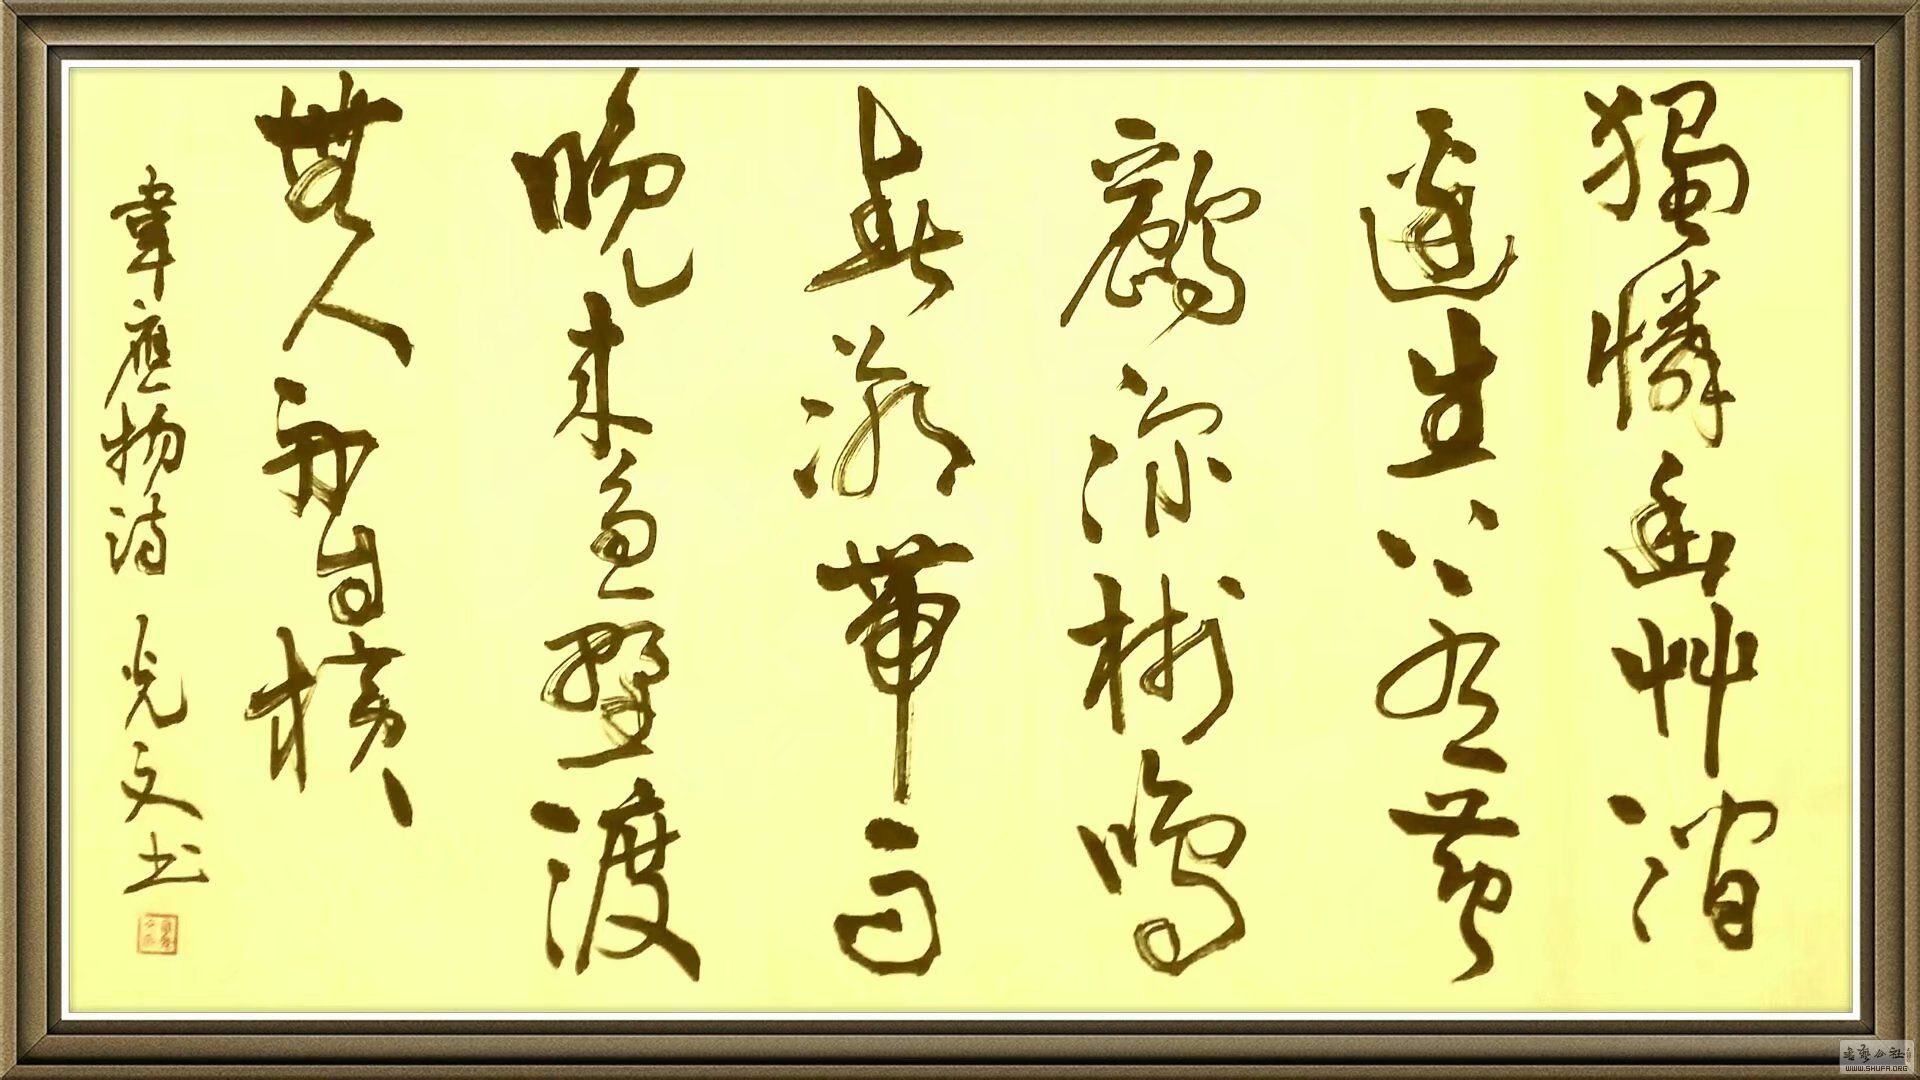 獨憐幽艸澗
邊生上有黃
鸝深樹鳴
春潮帶雨
晚来急野渡
無人舟自橫
韋應物詩 光文书
书艺公社
WWW.SHUFA.ORG